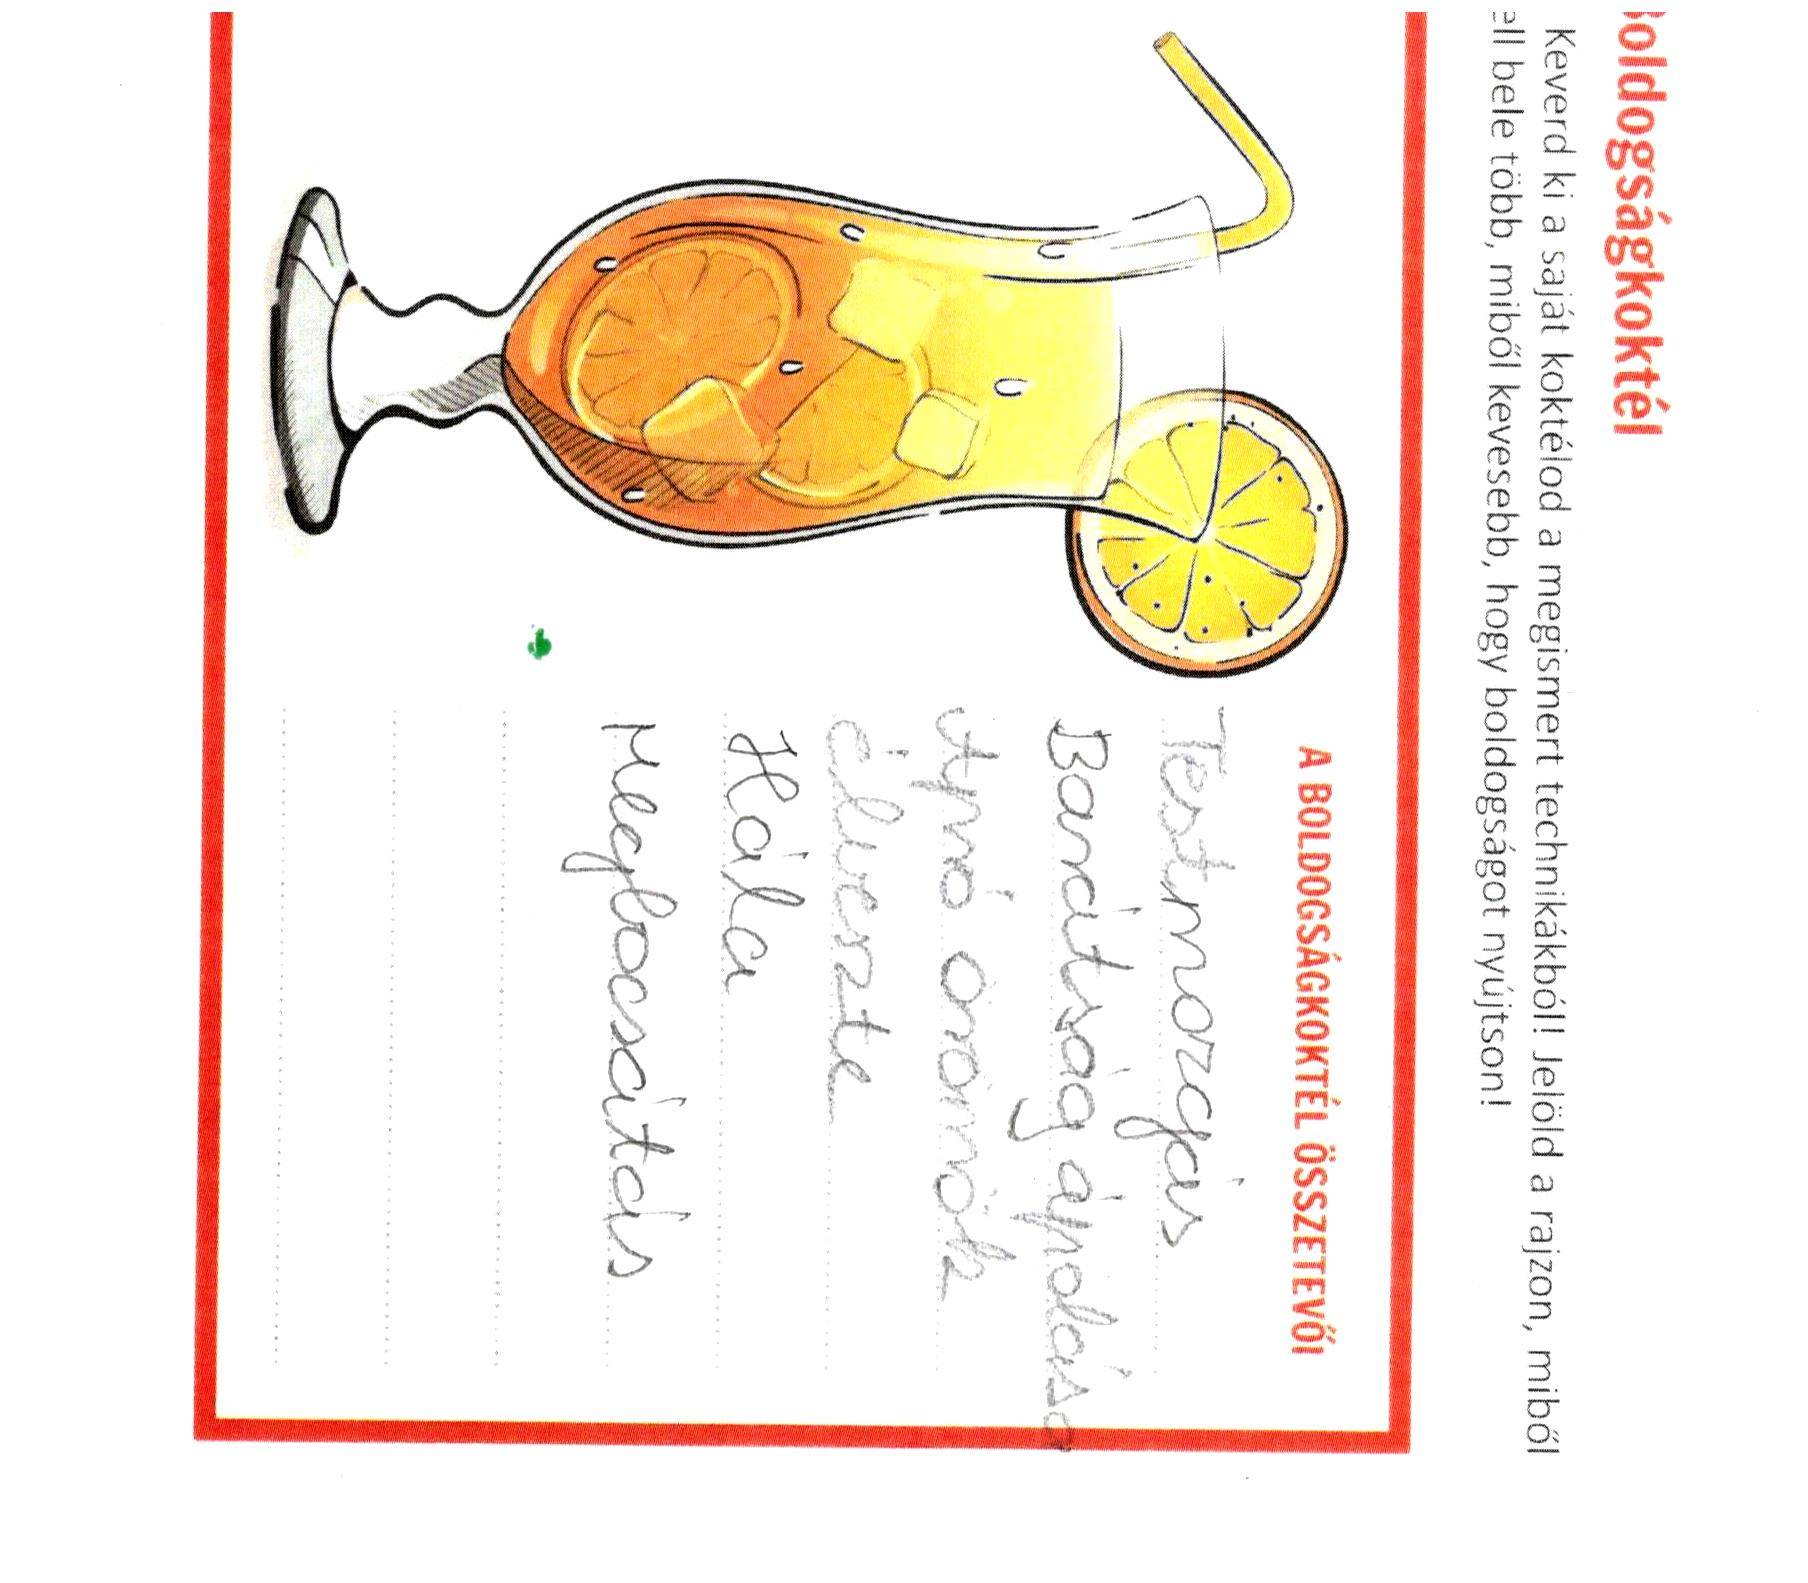 Boldogságkoktél
Keverd ki a saját koktélod a megismert technikákból! Jelöld a rajzon, miből
ell bele több, miből kevesebb, hogy boldogságot nyújtson!
A BOLDOGSÁGKOKTÉL ÖSSZETEVŐI
Testmozgás
Barátság ápolása
Apró örömök
élvezete
Hála
Megbocsátás